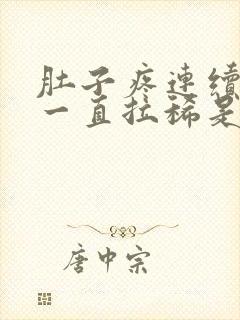 肚子疼連續
一直拉稀是
唐中宗